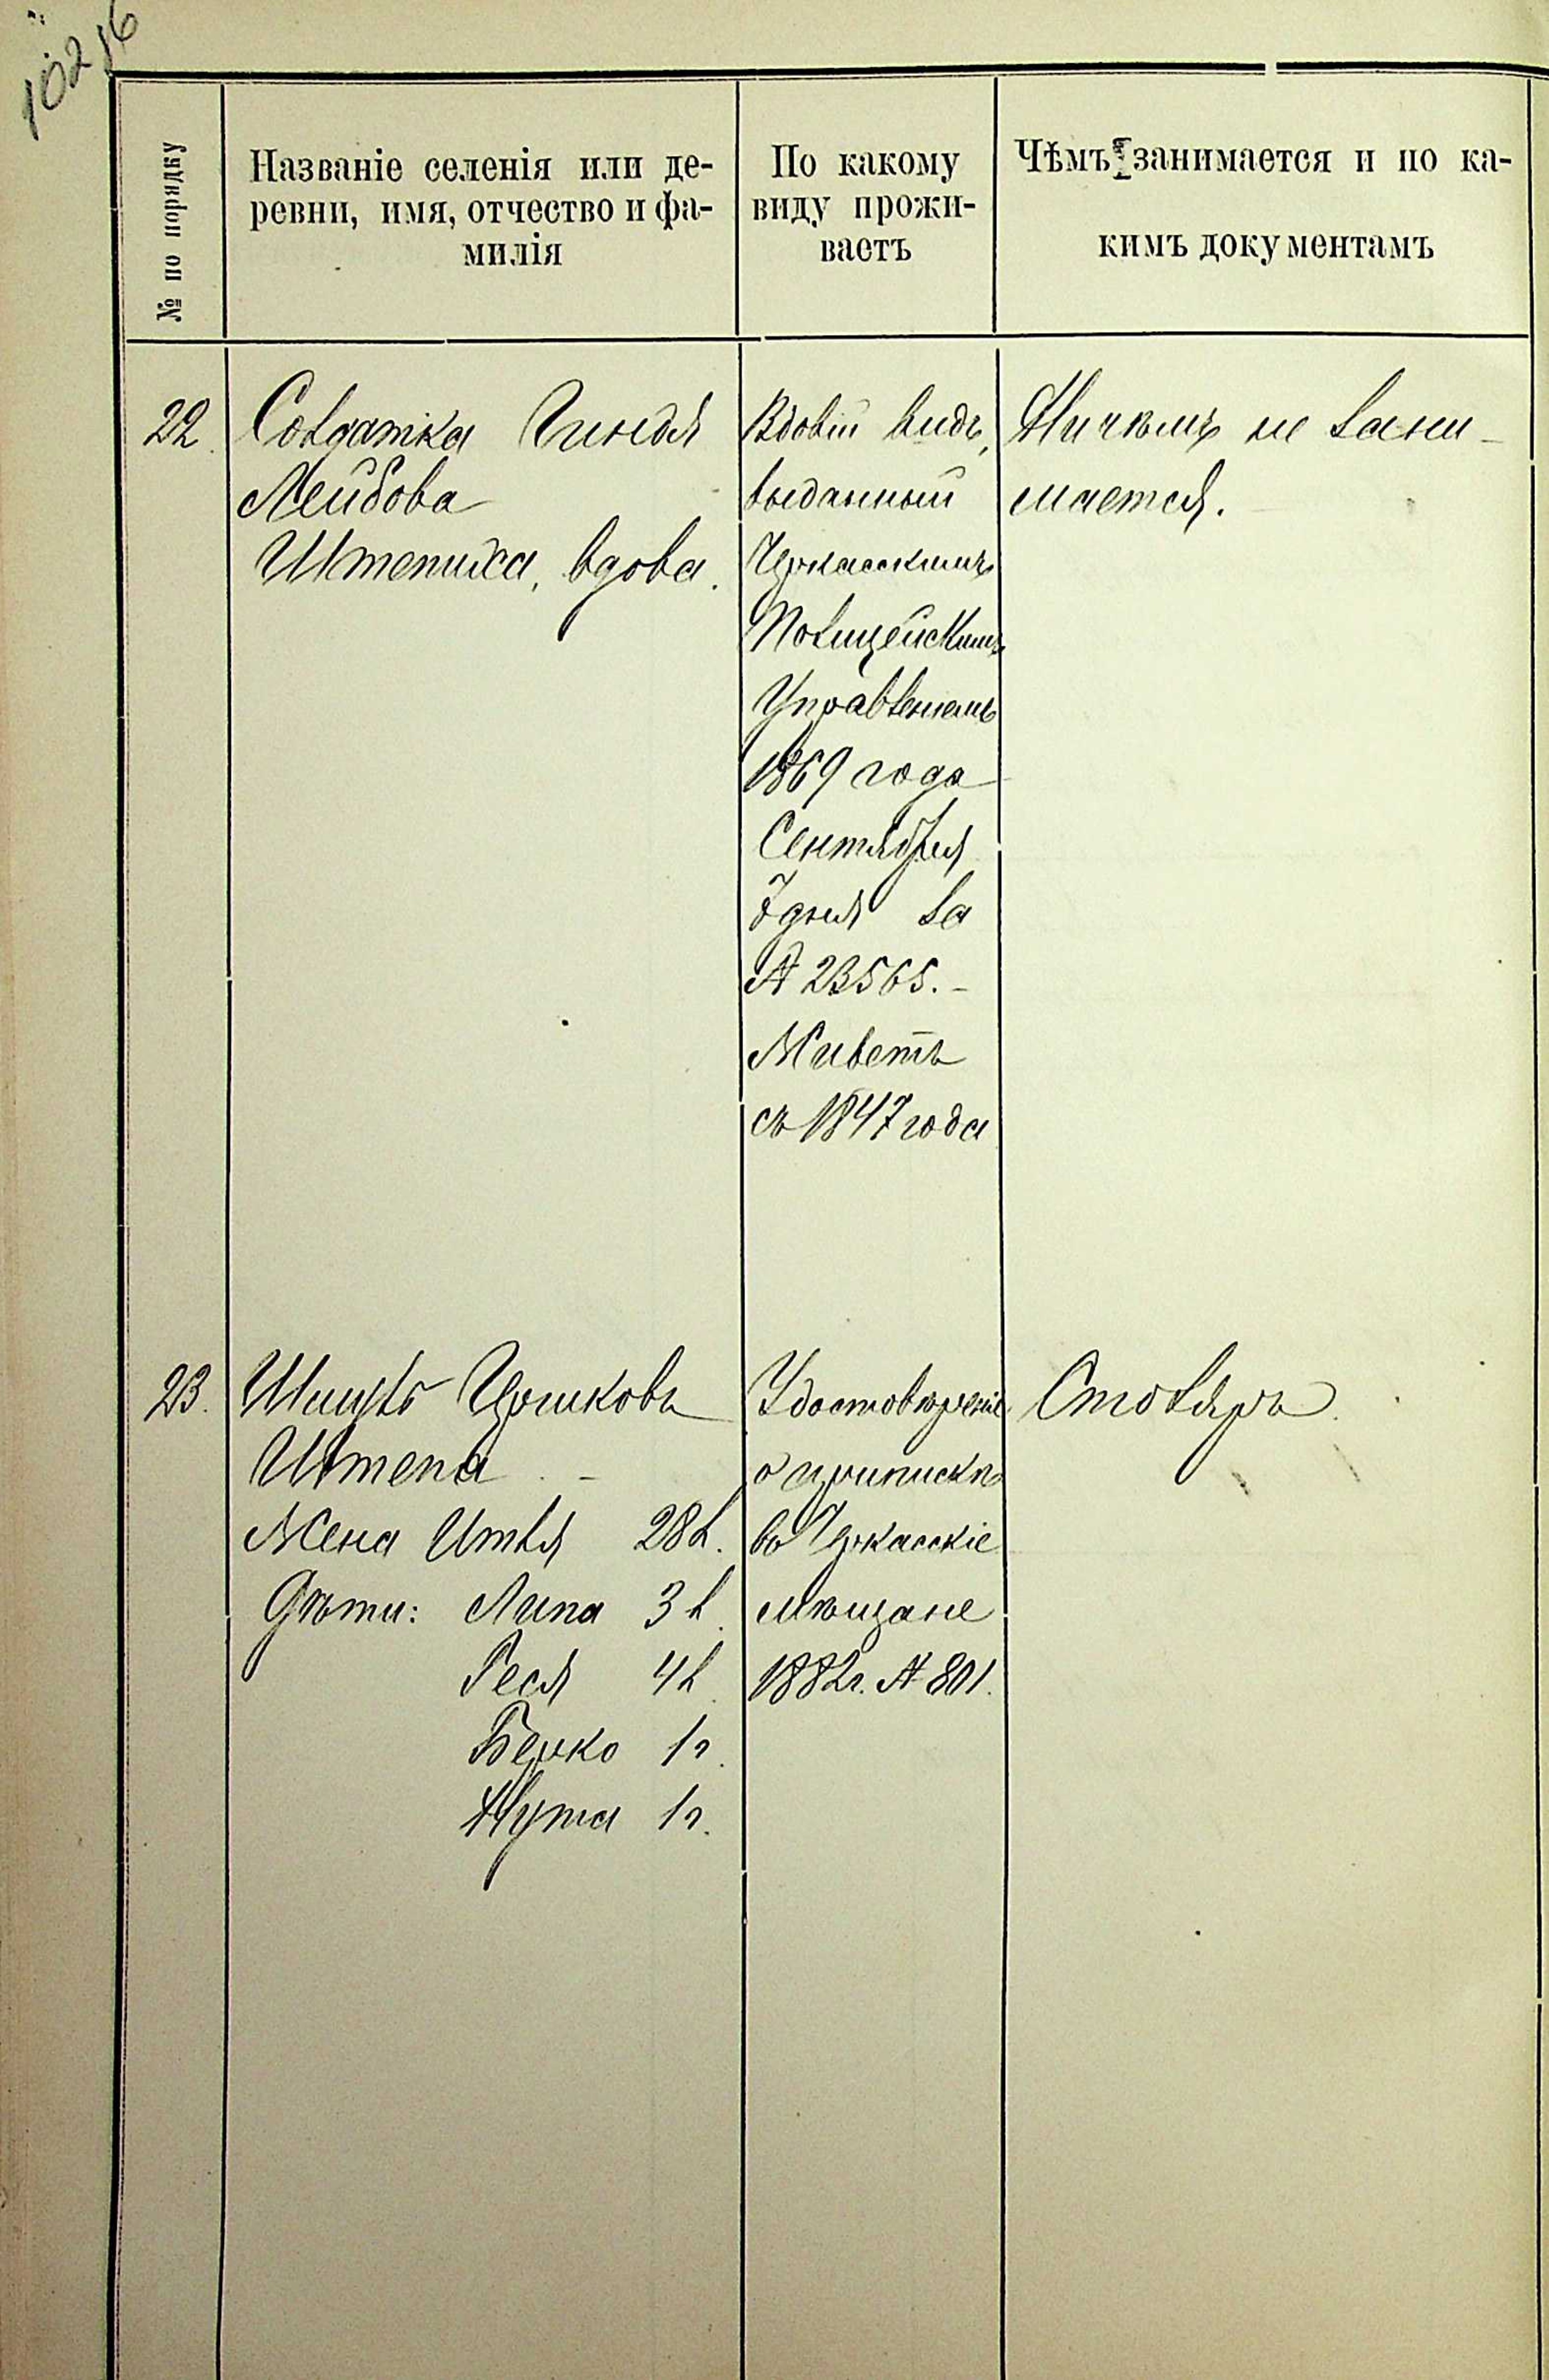 102 16
№ по порядку
Названіе селенія или де-
ревни, имя, отчество и фа-
милія
По какому
виду прожи-
ваетъ
Чѣмъ занимается и по ка-
кимъ документамъ
22.
Солдатка Гиндя
Лейбова
Штепиха, вдова.
Вдовій видъ,
выданный
Черкасскимъ
Полицейскимъ
Управленіемъ
1869 года
Сентября
7 дня за
№ 23565. -
Живетъ
съ 1847 года
Ничѣмъ не зани-
мается.
23.
Гершковъ
Штепа -
Жена Итля 28 л.
Дѣти: Липа 3 л.
Рися 4 л.
Берко 1 г.
Нута 1 г.
Удостовѣреніе
о припискѣ
въ Черкасскіе
мѣщане
1882 г. № 801.
Столяръ.